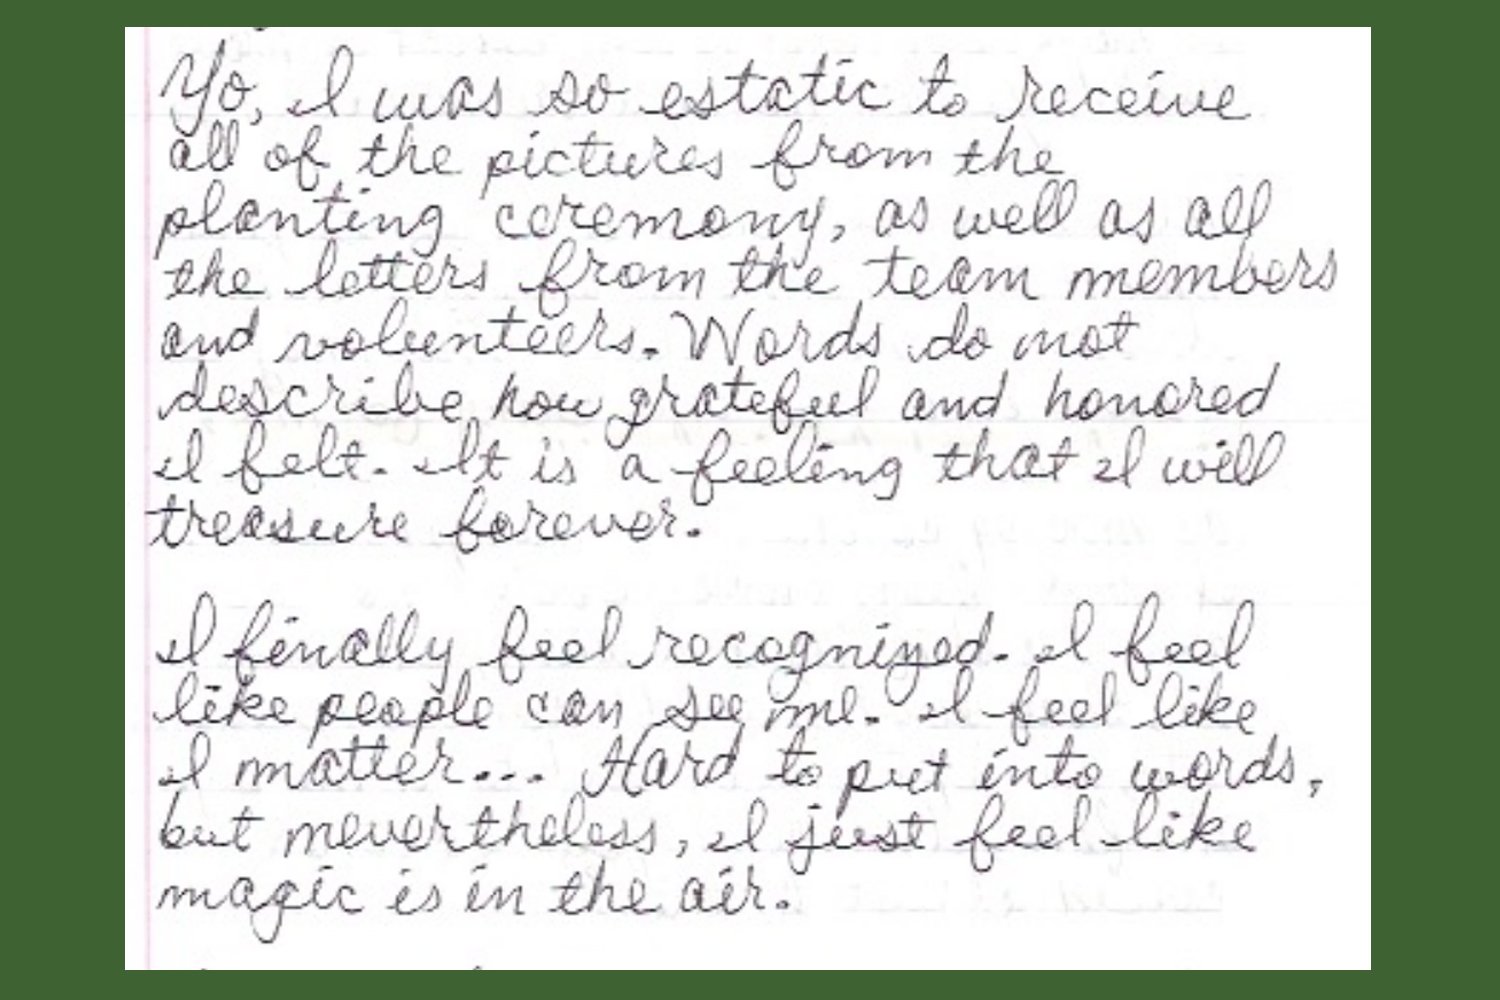 Yo, I was so estatic to receive
all of the pictures from the
planting ceremony, as well as all
the letters from the team members
and volunteers. Words do not
describe how grateful and honored
I felt. It is a feeling that I will
treasure forever.
I finally feel recognized. I feel
like people can see me. I feel like
I matter... Hard to put into words,
but nevertheless, I just feel like
magic is in the air.